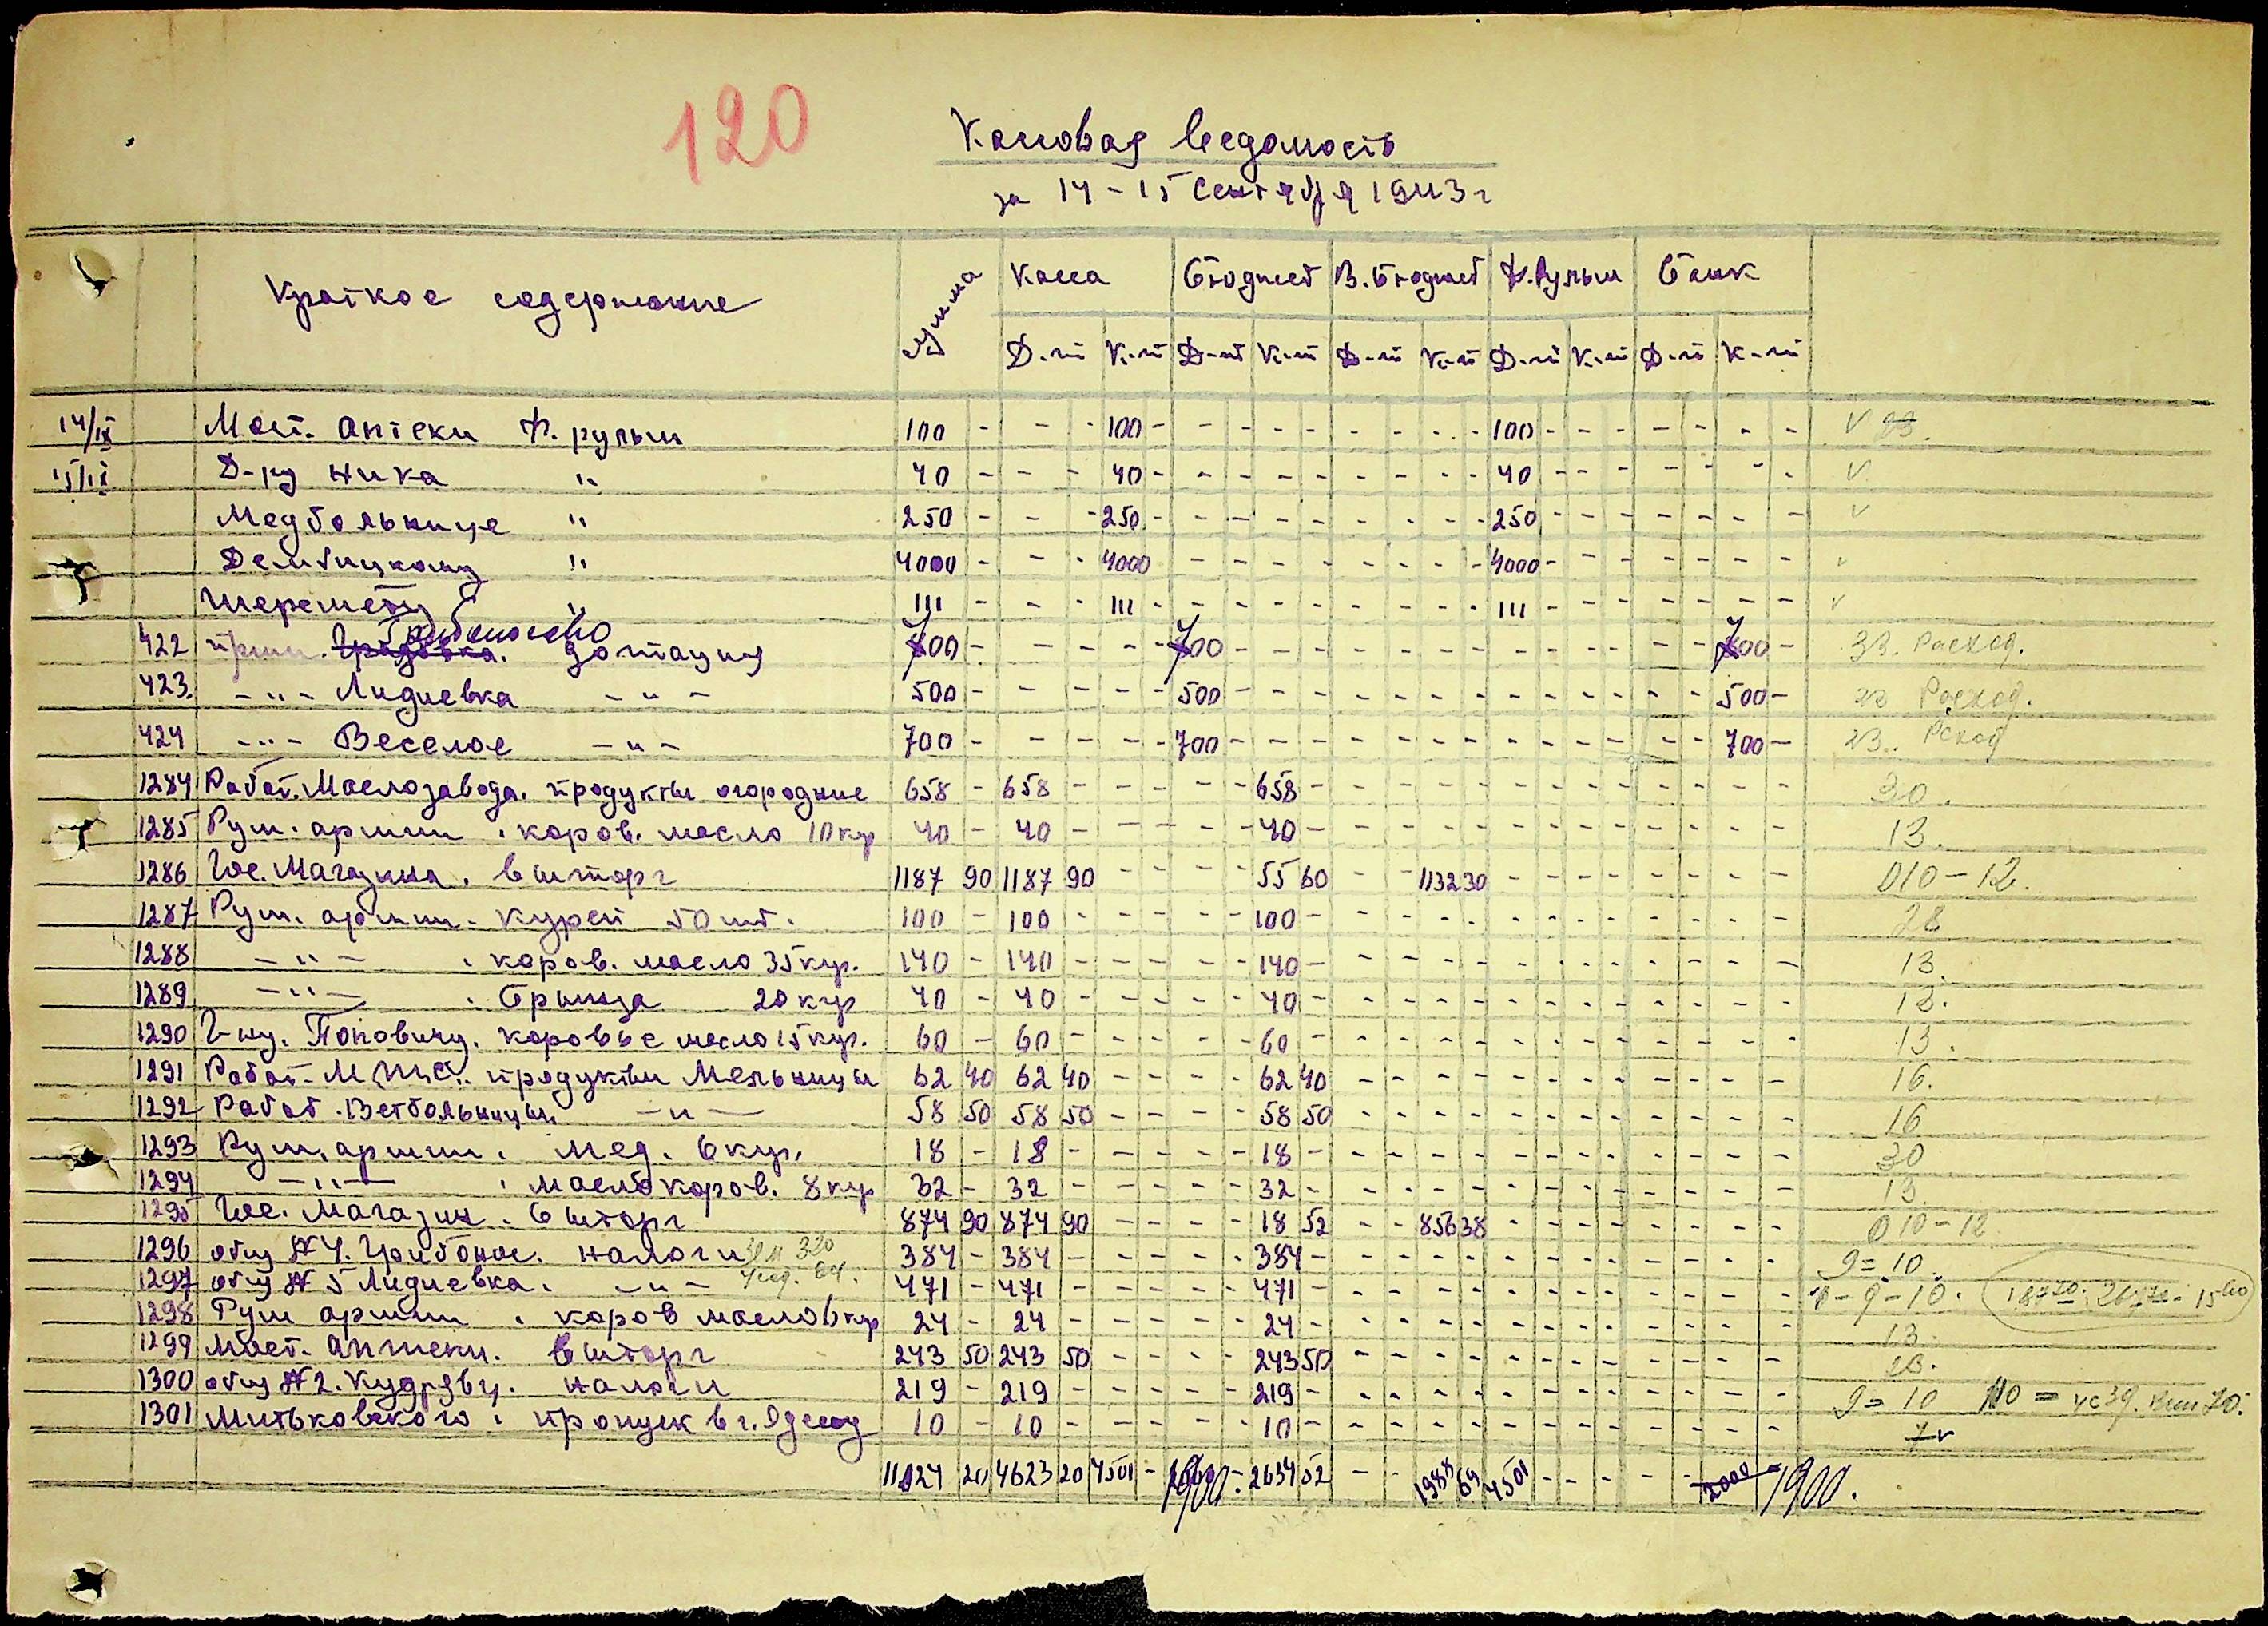 120
Кассовая ведомость
за 14-15 Сентября 1943 г
Краткое содержание Сумма Касса Бюджет В. Бюджет Ф. Румын Банк
Д-т К-т Д-т К-т Д-т К-т Д-т К-т Д-т К-т
14/IX Мест. аптеки Ф. румын 100 - - - 100 - - - - - - - - - 100 - - - - - - - V 23.
15/IX Д-ру Ника " 40 - - - 40 - - - - - - - - - 40 - - - - - - - V
Медбольнице " 250 - - - 250 - - - - - - - - - 250 - - - - - - - V
Дембицкому " 4000 - - - 4000 - - - - - - - - - 4000 - - - - - - - V
Шеремету " 111 - - - 111 - - - - - - - - - 111 - - - - - - - V
422 прим. Грибоносово дотация 700 - - - - - 700 - - - - - - - - - - - - - 700 - 33. Расход.
423. -"- Лидиевка -"- 500 - - - - - 500 - - - - - - - - - - - - - 500 - Расход.
424 -"- Веселое -"- 700 - - - - - 700 - - - - - - - - - - - - - 700 -
1284 Работ. Маслозавода. продукты огородние 658 - 658 - - - - - 658 - - - - - - - - - - - - - 30.
1285 Рум. армии . коров. масло 10 кгр 40 - 40 - - - - - 40 - - - - - - - - - - - - - 13.
1286 Гос. Магазина. вишторг 1187 90 1187 90 - - - - 55 60 - - 1132 30 - - - - - - - - 010-12.
1287 Рум. армии - курей 50 шт. 100 - 100 - - - - - 100 - - - - - - - - - - - - - 28
1288 -"- . коров. масло 35 кгр. 140 - 140 - - - - - 140 - - - - - - - - - - - - - 13.
1289 -"- . Брынза 20 кгр 40 - 40 - - - - - 40 - - - - - - - - - - - - - 13.
1290 Г-ну. Поповичу. коровье масло 15 кгр. 60 - 60 - - - - - 60 - - - - - - - - - - - - - 13.
1291 Работ. М.Т.С. продукты Мельницы 62 40 62 40 - - - - 62 40 - - - - - - - - - - - - 16.
1292 Работ. Ветбольницы -"- 58 50 58 50 - - - - 58 50 - - - - - - - - - - - - 16
1293 Рум. армии . мед. 6 кгр. 18 - 18 - - - - - 18 - - - - - - - - - - - - - 30
1294 -"- . масло коров. 8 кгр 32 - 32 - - - - - 32 - - - - - - - - - - - - - 13.
1295 Гос. Магазин. вишторг 874 90 874 90 - - - - 18 52 - - 856 38 - - - - - - - - 010-12
1296 общ № 4. Грибонос. налоги 320 384 - 384 - - - - - 384 - - - - - - - - - - - - - 9=10.
1297 общ № 5 Лидиевка. -"- 64. 471 - 471 - - - - - 471 - - - - - - - - - - - - - -9-10.
1298 Рум армии . коров масло 6 кгр 24 - 24 - - - - - 24 - - - - - - - - - - - - - 13.
1299 Мест. аптеки. вишторг 243 50 243 50 - - - - 243 50 - - - - - - - - - - - - 23.
1300 общ № 2. Кудрявц. налоги 219 - 219 - - - - - 219 - - - - - - - - - - - - - 9=10
1301 Митьковского . пропуск в г. Одессу 10 - 10 - - - - - 10 - - - - - - - - - - - - - 7v
11024 20 4623 20 4501 - 1900. - 2634 52 - - 1988 68 4501 - - - - - 2000 - 1900.